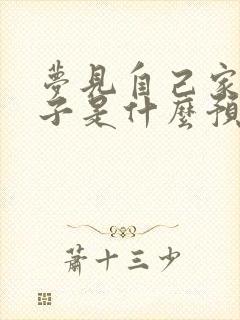 夢見自己家
子是什麼預
蕭十三少